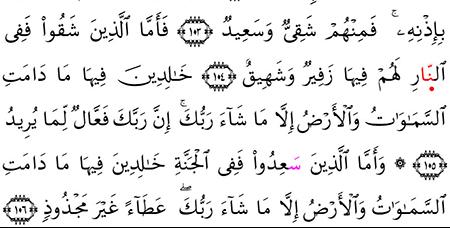 بِإِذْنِهِۦۚ فَمِنْهُمْ شَقِيٌّ وَسَعِيدٌ ١٥٣ فَأَمَّا ٱلَّذِينَ شَقُواْ فَفِي
ٱلنّ۪ارِ لَهُمْ فِيهَا زَفِيرٌ وَشَهِيقٌ ١٥٤ خَٰلِدِينَ فِيهَا مَا دَامَتِ
ٱلسَّمَٰوَٰتُ وَٱلْأَرْضُ إِلَّا مَا شَآءَ رَبُّكَۚ إِنَّ رَبَّكَ فَعَّالٌ لِّمَا يُرِيدُ
١٥٥ ۞ وَأَمَّا ٱلَّذِينَ سَعِدُواْ فَفِي ٱلْجَنَّةِ خَٰلِدِينَ فِيهَا مَا دَامَتِ
ٱلسَّمَٰوَٰتُ وَٱلْأَرْضُ إِلَّا مَا شَآءَ رَبُّكَۖ عَطَآءً غَيْرَ مَجْذُوذٍ ١٥٦